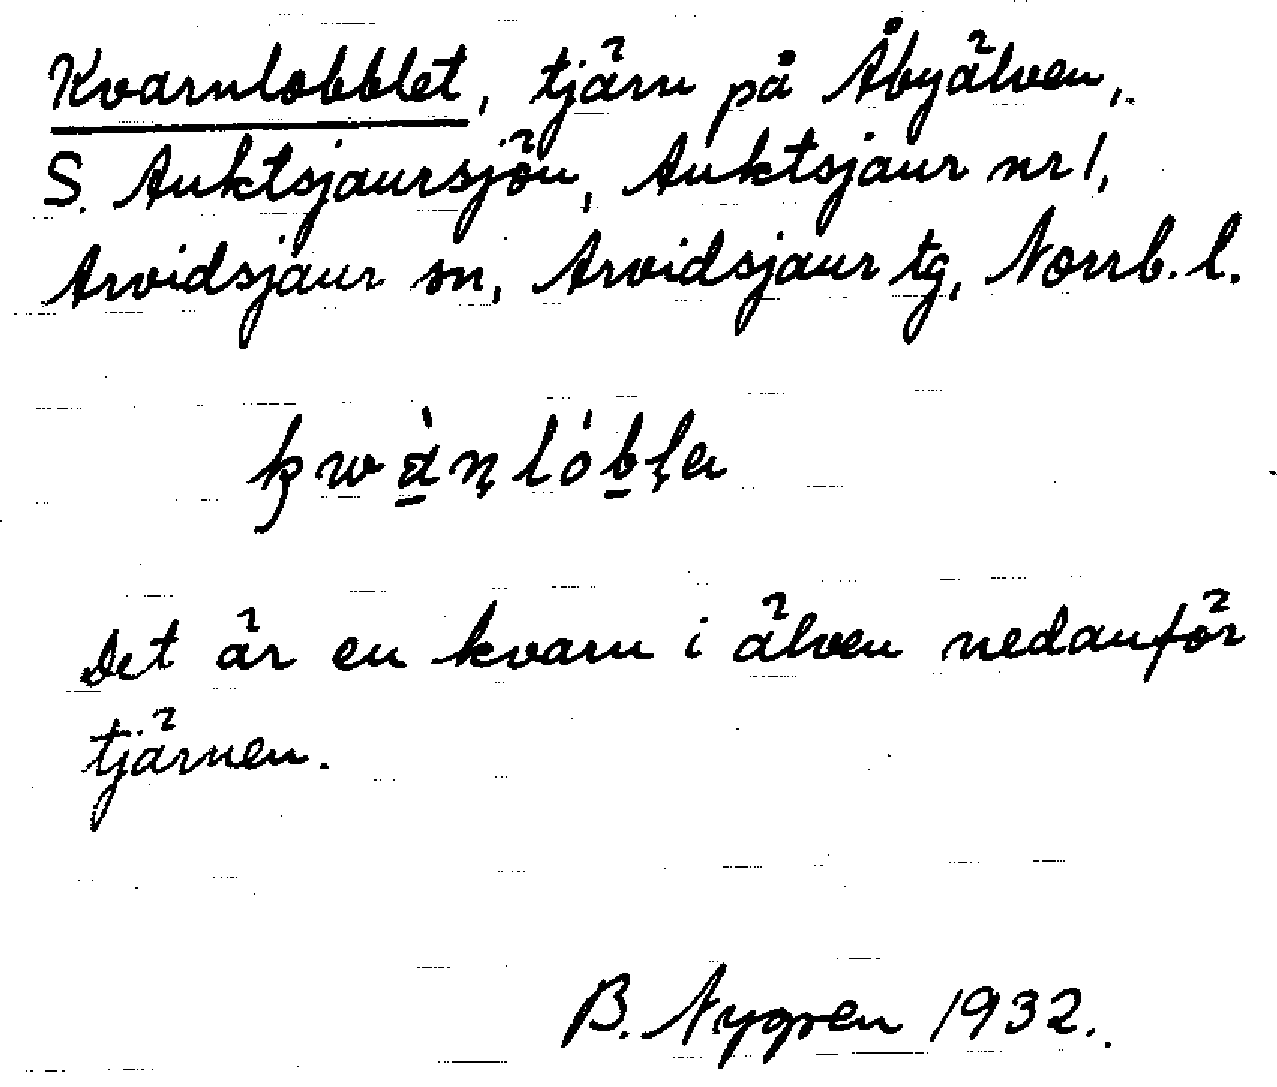 Kvarnlobblet, tjärn på Åbyälven,
S. Auktsjaursjön, Auktsjaur nr 1,
Arvidsjaur sn, Arvidsjaur tg, Norrb. l.
Det är en kvarn i älven nedanför
tjärnen.
B. Nygren 1932.